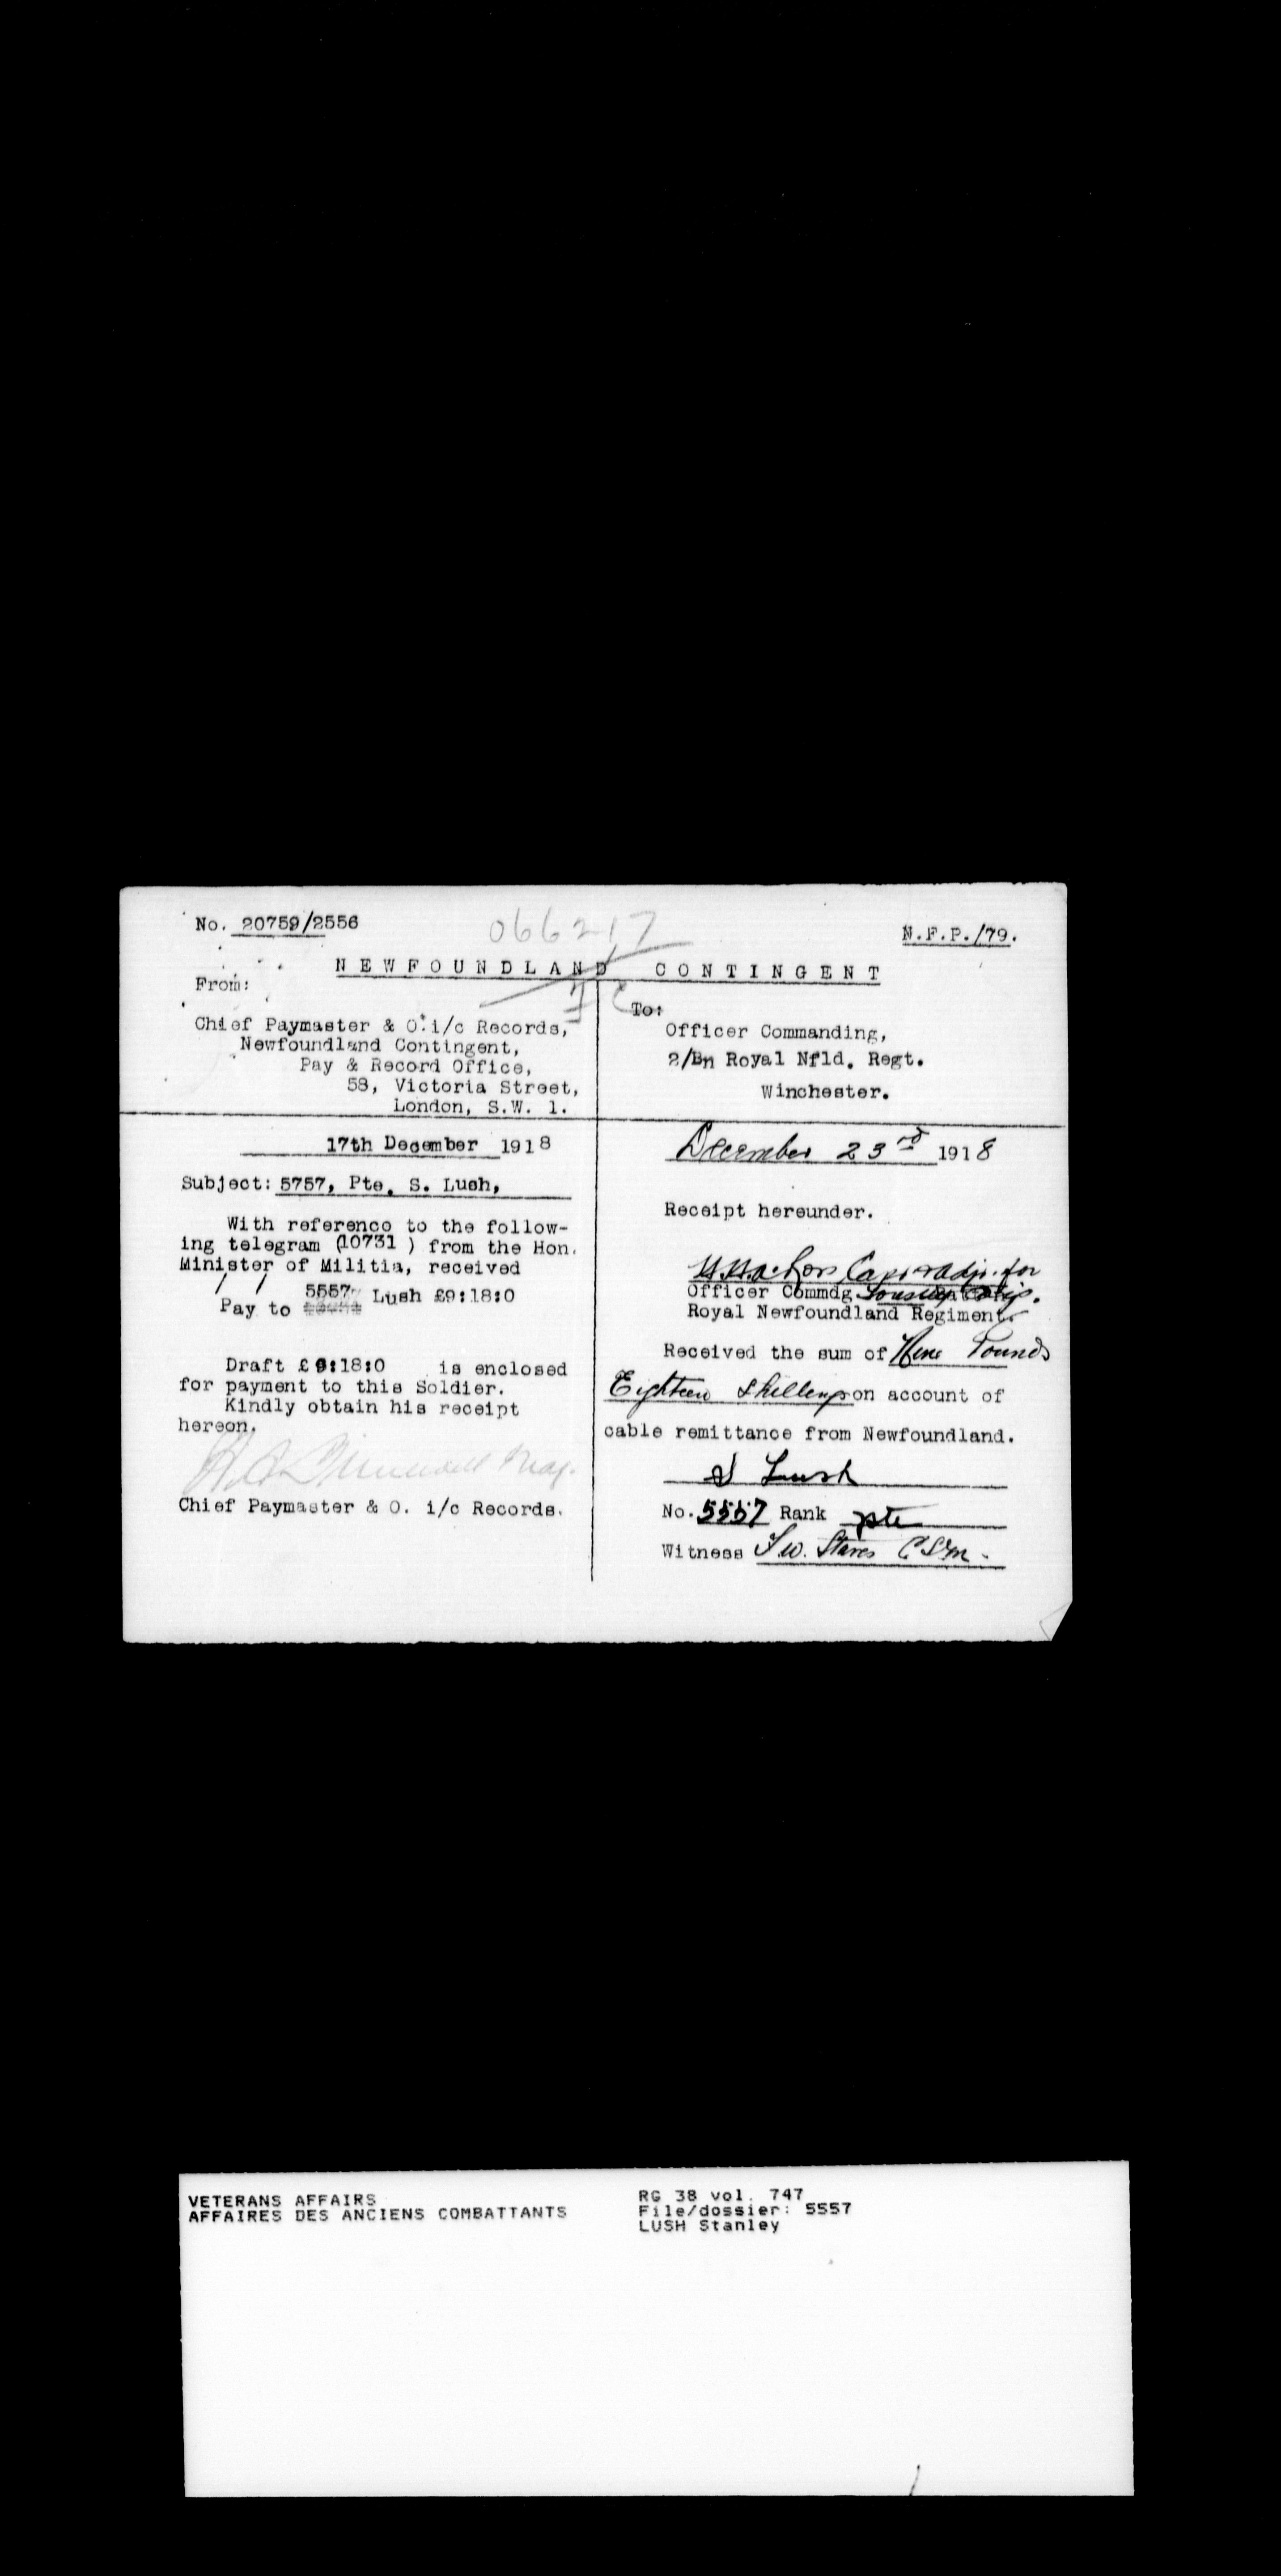 No. 20759/2556
066217
N.F.P./79.
NEWFOUNDLAND CONTINGENT
From:
Chief Paymaster & O. i/c Records,
Newfoundland Contingent,
Pay & Record Office,
58, Victoria Street,
London, S.W. 1.
To:
Officer Commanding,
2/Bn Royal Nfld. Regt.
Winchester.
17th December 1918
Subject: 5757, Pte. S. Lush,
With reference to the follow-
ing telegram (10731 ) from the Hon.
Minister of Militia, received
/ /
5557
Pay to Lush £9:18:0
Draft £ 9:18:0 is enclosed
for payment to this Soldier.
Kindly obtain his receipt
hereon.
Maj.
Chief Paymaster & O. i/c Records.
December 23rd 1918
Receipt hereunder.
Capt & Adjt. for
Officer Commdg
Royal Newfoundland Regiment.
Received the sum of Nine Pounds
Eighteen Shillings on account of
cable remittance from Newfoundland.
S Lush
No. 5557 Rank pte
Witness CSM.
VETERANS AFFAIRS
AFFAIRES DES ANCIENS COMBATTANTS
RG 38 vol. 747
File/dossier: 5557
LUSH Stanley